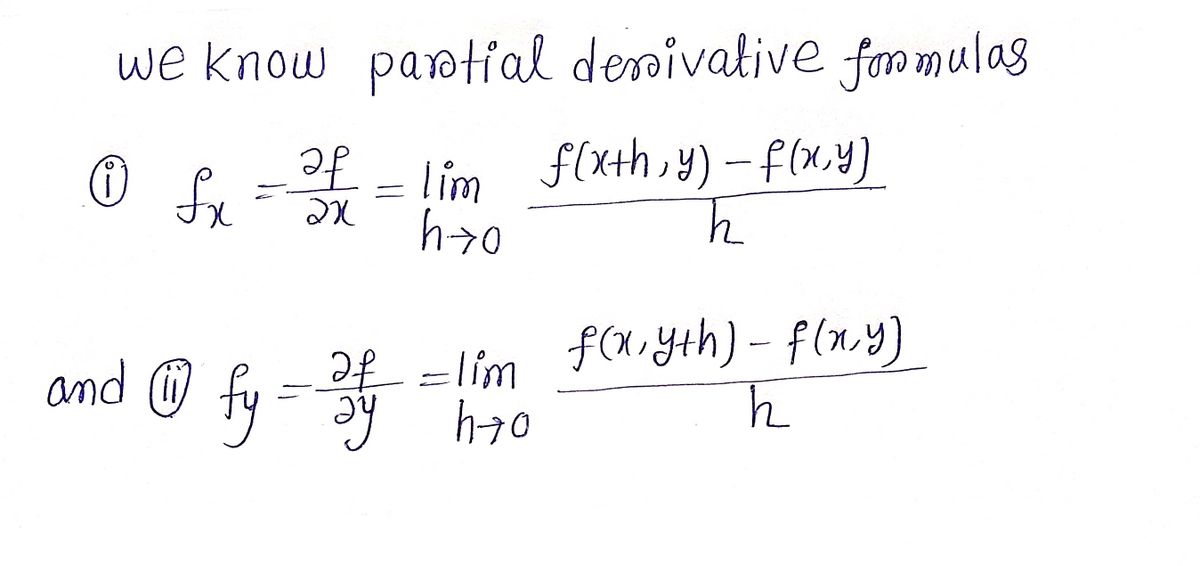 we know partial derivative formulas
(i) fx = ∂f/∂x = lim h→0 f(x+h, y) - f(x,y) / h
and (ii) fy = ∂f/∂y = lim h→0 f(x,y+h) - f(x,y) / h